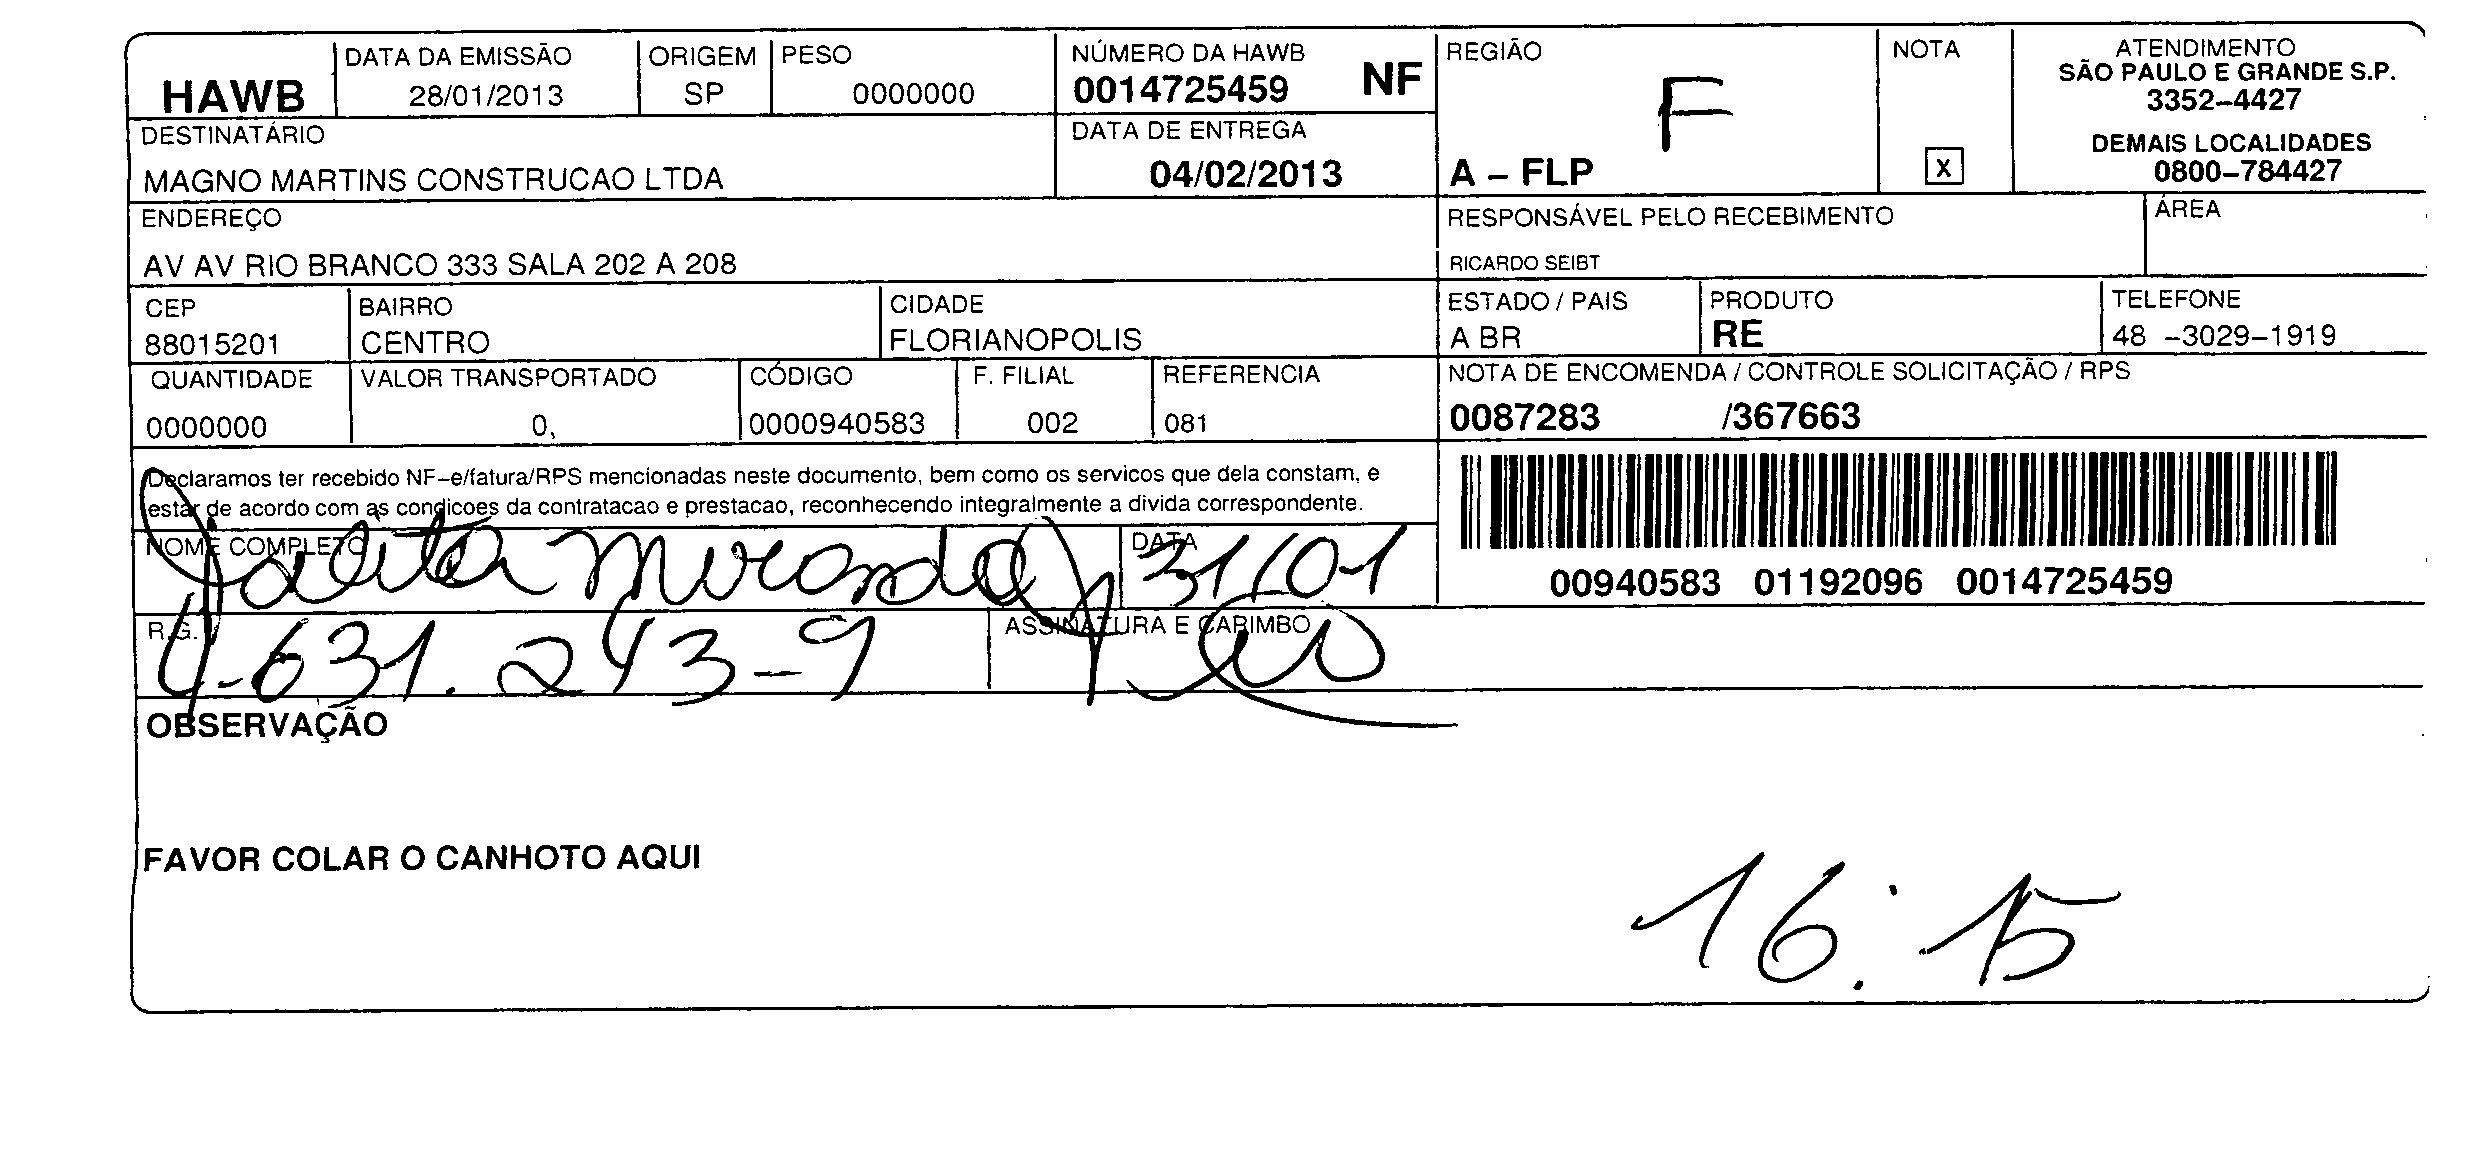 HAWB
DATA DA EMISSÃO
28/01/2013
ORIGEM
SP
PESO
0000000
NÚMERO DA HAWB
0014725459 NF
REGIÃO
F
A – FLP
NOTA
X
ATENDIMENTO
SÃO PAULO E GRANDE S.P.
3352–4427
DEMAIS LOCALIDADES
0800–784427
DESTINATÁRIO
MAGNO MARTINS CONSTRUCAO LTDA
DATA DE ENTREGA
04/02/2013
ENDEREÇO
AV AV RIO BRANCO 333 SALA 202 A 208
RESPONSÁVEL PELO RECEBIMENTO
RICARDO SEIBT
ÁREA
CEP
88015201
BAIRRO
CENTRO
CIDADE
FLORIANOPOLIS
ESTADO / PAIS
A BR
PRODUTO
RE
TELEFONE
48 –3029–1919
QUANTIDADE
0000000
VALOR TRANSPORTADO
0,
CÓDIGO
0000940583
F. FILIAL
002
REFERENCIA
081
NOTA DE ENCOMENDA / CONTROLE SOLICITAÇÃO / RPS
0087283 /367663
Declaramos ter recebido NF–e/fatura/RPS mencionadas neste documento, bem como os servicos que dela constam, e
estar de acordo com as condicoes da contratacao e prestacao, reconhecendo integralmente a divida correspondente.
00940583 01192096 0014725459
NOME COMPLETO
Miranda
DATA
31/01
R.G.
4-631.243-9
ASSINATURA E CARIMBO
OBSERVAÇÃO
FAVOR COLAR O CANHOTO AQUI
16:15